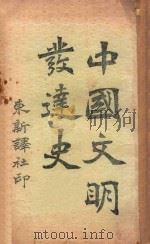 中國文明
發達史
東新譯社印
www.mtoou.info yunbook.vip